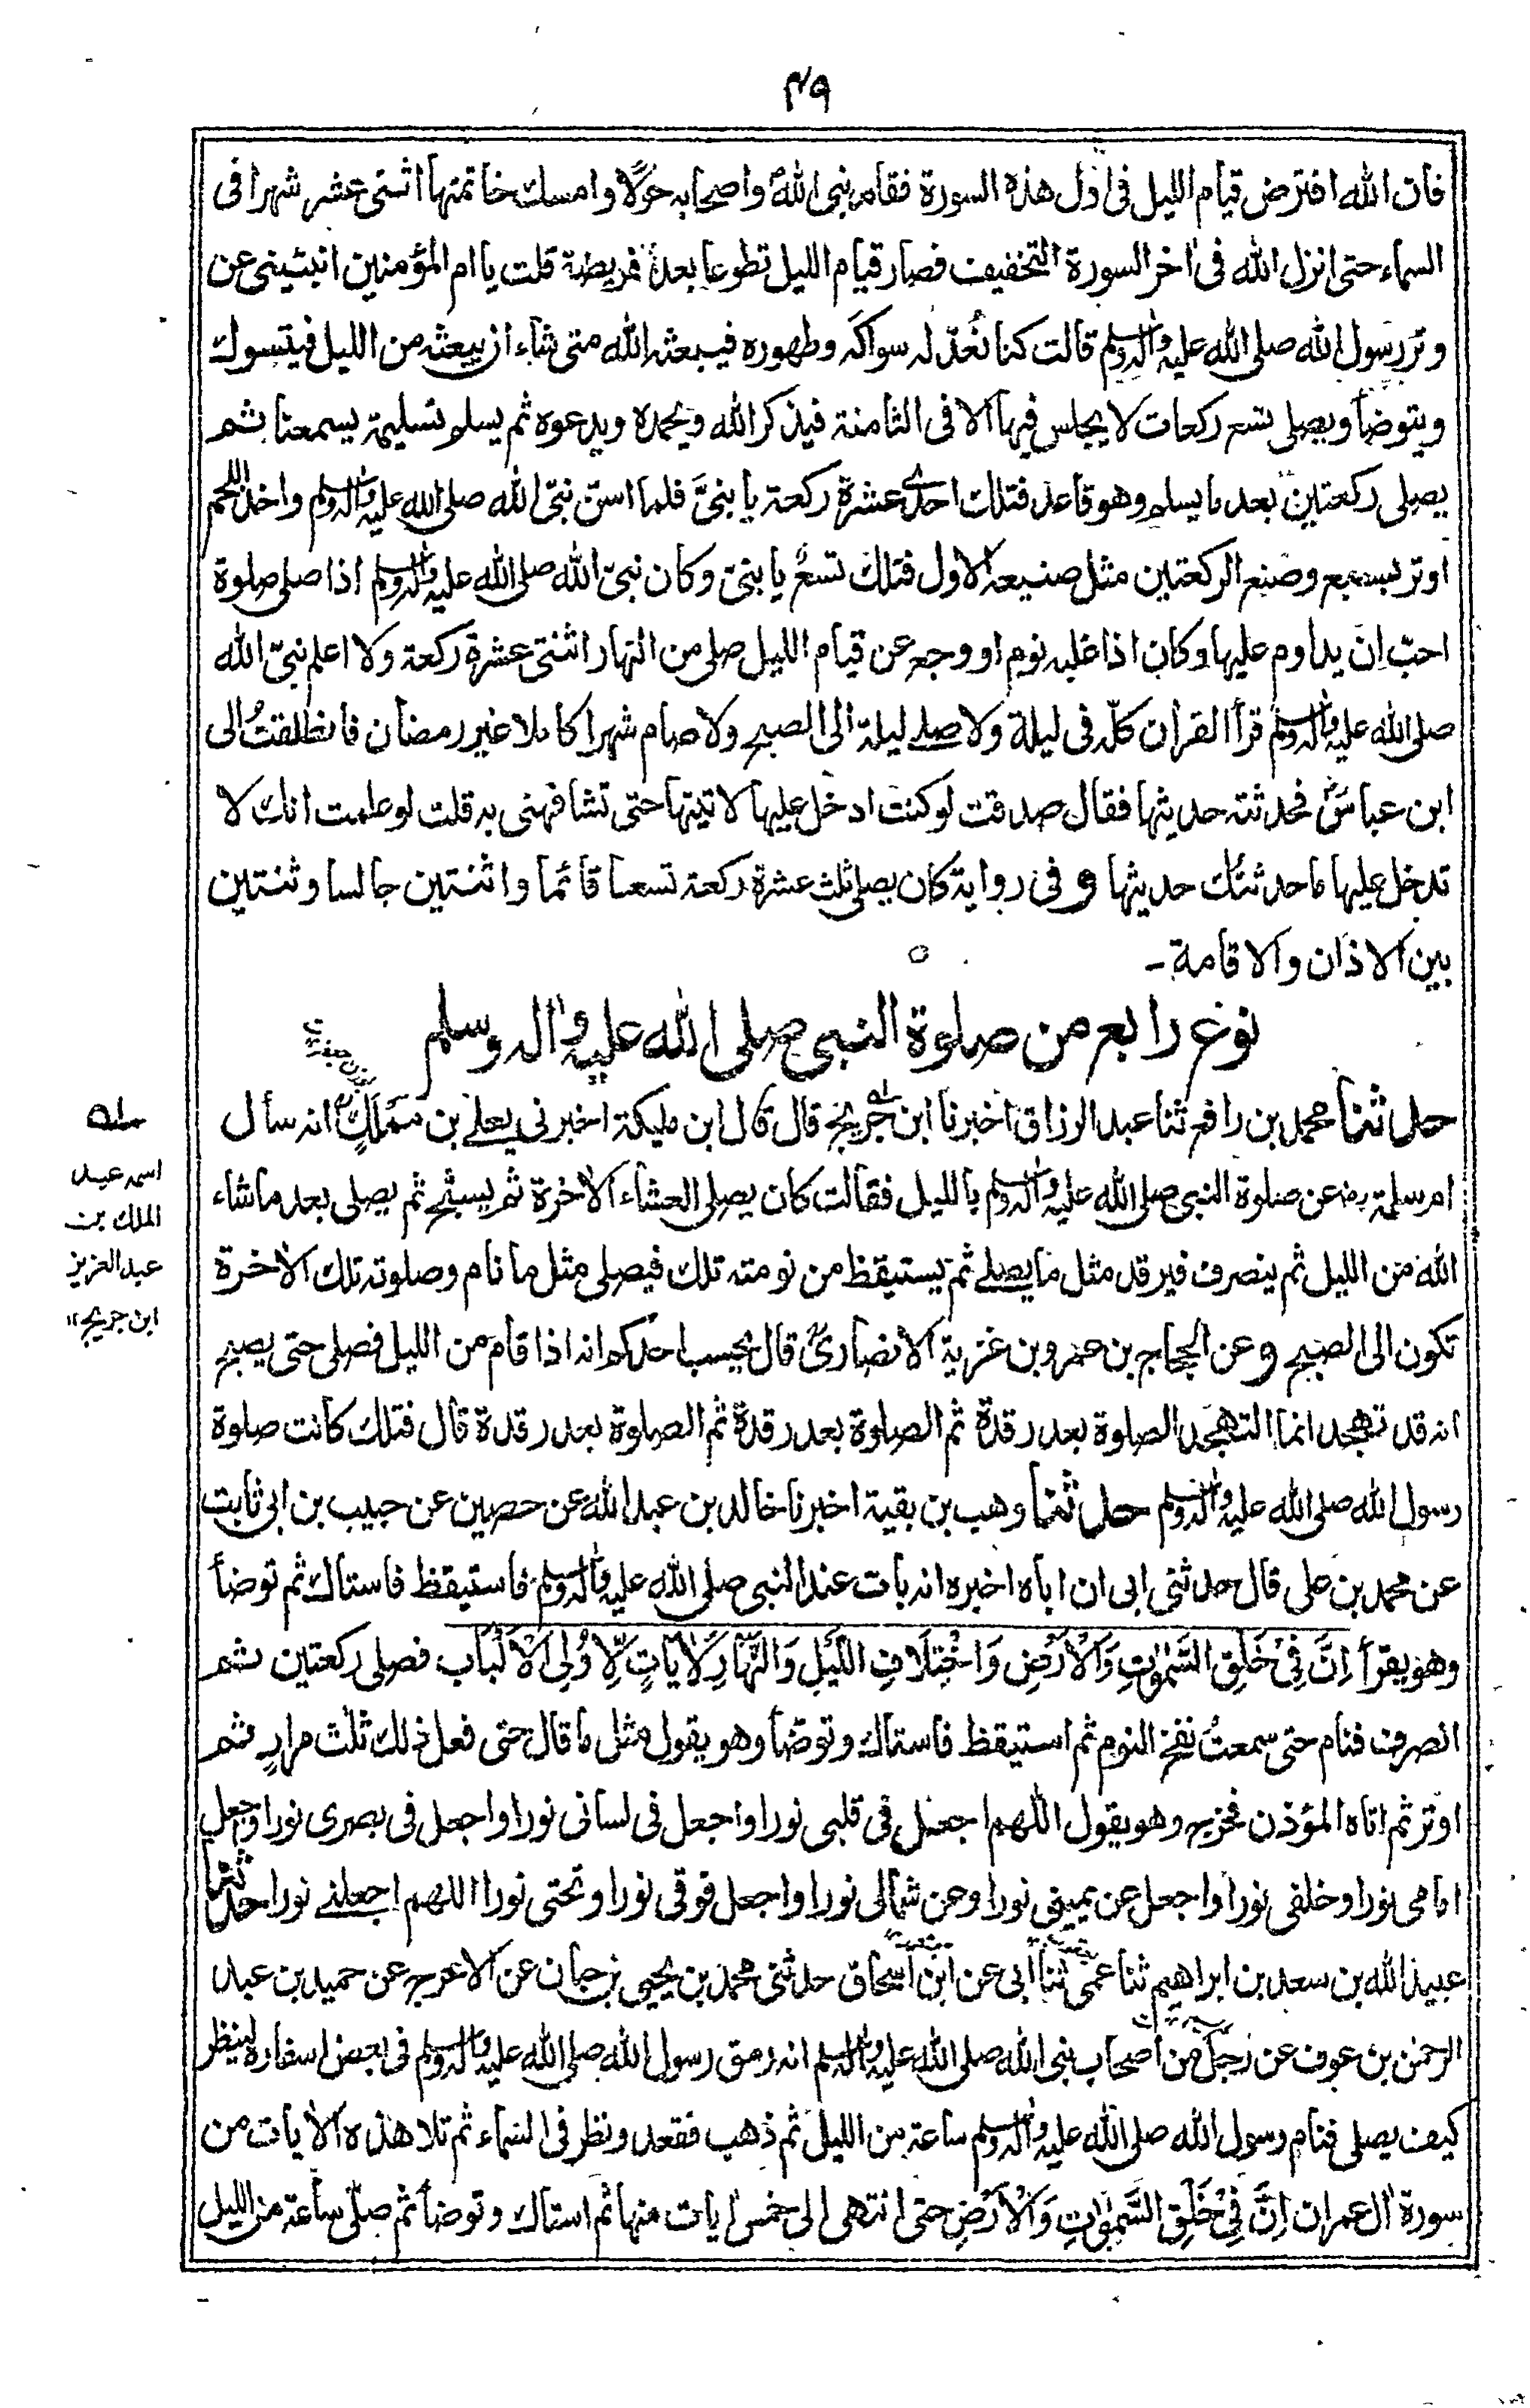 ۴۹
فان الله افترض قيام الليل فى اول هذه السورة فقام نبى الله واصحابه حولا وامسك خاتمتها اثنى عشر شهرا فى
السماء حتى انزل الله فى اخر السورة التخفيف فصار قيام الليل تطوعا بعد فريضة قلت يا ام المؤمنين انبئينى عن
وتر رسول الله صلى الله عليه واله وسلم قالت كنا نعدّ له سواكه وطهوره فيبعثه الله متى شاء ان يبعثه من الليل فيتسوك
ويتوضأ ويصلى تسع ركعات لا يجلس فيها الا فى الثامنة فيذكر الله ويحمده ويدعوه ثم يسلم تسليمة يسمعنا ثم
يصلى ركعتين بعد ما يسلم وهو قاعد فتلك احدى عشرة ركعة يا بنىّ فلما اسنّ نبىّ الله صلى الله عليه واله وسلم واخذ اللحم
اوتر بسبع وصنع الركعتين مثل صنيعه الاول فتلك تسعٌ يا بنىّ وكان نبىّ الله صلى الله عليه واله وسلم اذا صلى صلوة
احبّ ان يداوم عليها وكان اذا غلبه نوم او وجع عن قيام الليل صلى من النهار اثنتى عشرة ركعة ولا اعلم نبىّ الله
صلى الله عليه واله وسلم قرأ القران كلّه فى ليلة ولا صلى ليلة الى الصبح ولا صام شهرا كاملا غير رمضان فانطلقتُ الى
ابن عباسؓ فحدثته حديثها فقال صدقت لو كنت ادخل عليها لاتيتها حتى تشافهنى به قلت لو علمت انك لا
تدخل عليها ما حدثتك حديثها و فى رواية كان يصلى ثلث عشرة ركعة تسعا قائما واثنتين جالسا وثنتين
بين الاذان والاقامة۔
نوع رابع من صلوة النبى صلى الله عليه واله وسلم
حدثنا محمد بن رافع ثنا عبد الرزاق اخبرنا ابن جريج قال قال ابن مليكة اخبرنى يعلى بن مملك انه سأل
ام سلمة رضـ عن صلوة النبى صلى الله عليه واله وسلم بالليل فقالت كان يصلى العشاء الاخرة ثم يسبّح ثم يصلى بعد ما شاء
الله من الليل ثم ينصرف فيرقد مثل ما يصلى ثم يستيقظ من نومته تلك فيصلى مثل ما نام وصلوته تلك الاخرة
تكون الى الصبح و عن الحجاج بن عمرو بن غزية الانصارىؓ قال يحسب احدكم انه اذا قام من الليل فصلى حتى يصبح
انه قد تهجد انما التهجد الصلوة بعد رقدة ثم الصلوة بعد رقدة ثم الصلوة بعد رقدة قال فتلك كانت صلوة
رسول الله صلى الله عليه واله وسلم حدثنا وهب بن بقية اخبرنا خالد بن عبد الله عن حصين عن حبيب بن ابى ثابت
عن محمد بن على قال حدثنى ابى ان اباه اخبره انه بات عند النبى صلى الله عليه واله وسلم فاستيقظ فاستاك ثم توضأ
وهو يقرأ اِنَّ فِىْ خَلْقِ السَّمٰوٰتِ وَالْاَرْضِ وَاخْتِلَافِ اللَّيْلِ وَالنَّهَارِ لَاٰيَاتٍ لِّاُولِى الْاَلْبَاب فصلى ركعتين ثم
انصرف فنام حتى سمعتُ نفخ النوم ثم استيقظ فاستاك وتوضأ وهو يقول مثل ما قال حتى فعل ذلك ثلث مرارٍ ثم
اوتر ثم اتاه المؤذن فخرج وهو يقول اللهم اجعل فى قلبى نورا واجعل فى لسانى نورا واجعل فى بصرى نورا واجعل
امامى نورا وخلفى نورا واجعل عن يمينى نورا وعن شمالى نورا واجعل فوقى نورا وتحتى نورا اللهم اجعلنى نورا حدثنا
عبيد الله بن سعد بن ابراهيم ثنا عمى ثنا ابى عن ابن اسحاق حدثنى محمد بن يحيى بن حبان عن الاعرج عن حميد بن عبد
الرحمٰن بن عوف عن رجل من اصحاب نبى الله صلى الله عليه واله وسلم انه رمق رسول الله صلى الله عليه واله وسلم فى بعض اسفاره لينظر
كيف يصلى فنام رسول الله صلى الله عليه واله وسلم ساعة من الليل ثم ذهب فقعد ونظر فى السماء ثم تلا هذه الايات من
سورة ال عمران اِنَّ فِىْ خَلْقِ السَّمٰوٰتِ وَالْاَرْضِ حتى انتهى الى خمس ايات منها ثم استاك وتوضأ ثم صلّى ساعة من الليل
اسمه عبد
الملك بن
عبد العزيز
ابن جريج ۱۲